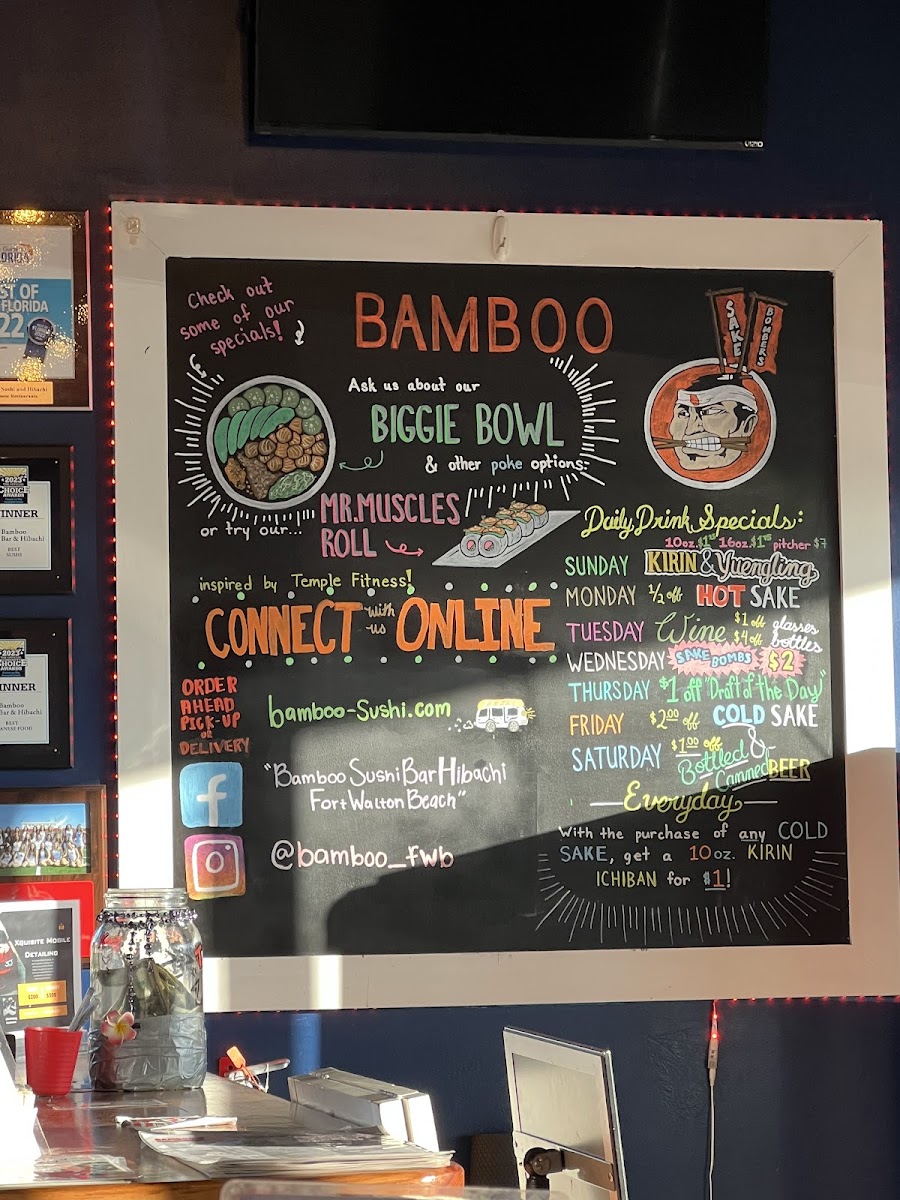 VIZIO
Check out
some of our
specials!
BAMBOO
SAKE
BOMBERS
Ask us about our
BIGGIE BOWL
& other poke options:
or try our...
MR. MUSCLES
ROLL
inspired by Temple Fitness!
CONNECT with us ONLINE
ORDER
AHEAD
PICK-UP
or
DELIVERY
bamboo-sushi.com
"Bamboo Sushi Bar Hibachi
Fort Walton Beach"
@bamboo_fwb
Daily Drink Specials:
10oz. 16oz. pitcher $7
SUNDAY KIRIN & Yuengling
MONDAY 1/2 off HOT SAKE
TUESDAY Wine $1 off glasses
$4 off bottles
WEDNESDAY SAKE BOMBS $2
THURSDAY $1 off "Draft of the Day"
FRIDAY $2.00 off COLD SAKE
SATURDAY $1.00 off
Bottled &
Canned BEER
Everyday
With the purchase of any COLD
SAKE, get a 10oz. KIRIN
ICHIBAN for $1!
ST OF
FLORIDA
22
Sushi and Hibachi
2023
CHOICE
AWARDS
INNER
Bamboo
Bar & Hibachi
BEST
SUSHI
2023
CHOICE
AWARDS
INNER
Bamboo
Bar & Hibachi
BEST
ANESE FOOD
XQUISITE MOBILE
DETAILING